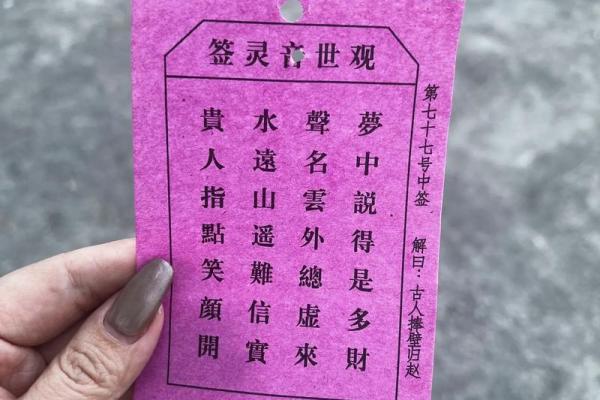 观世音灵签
第七十七号中签 解曰：古人捧璧归赵
夢中説得是多財
聲名雲外總虛來
水遠山遥難信實
貴人指點笑顔開